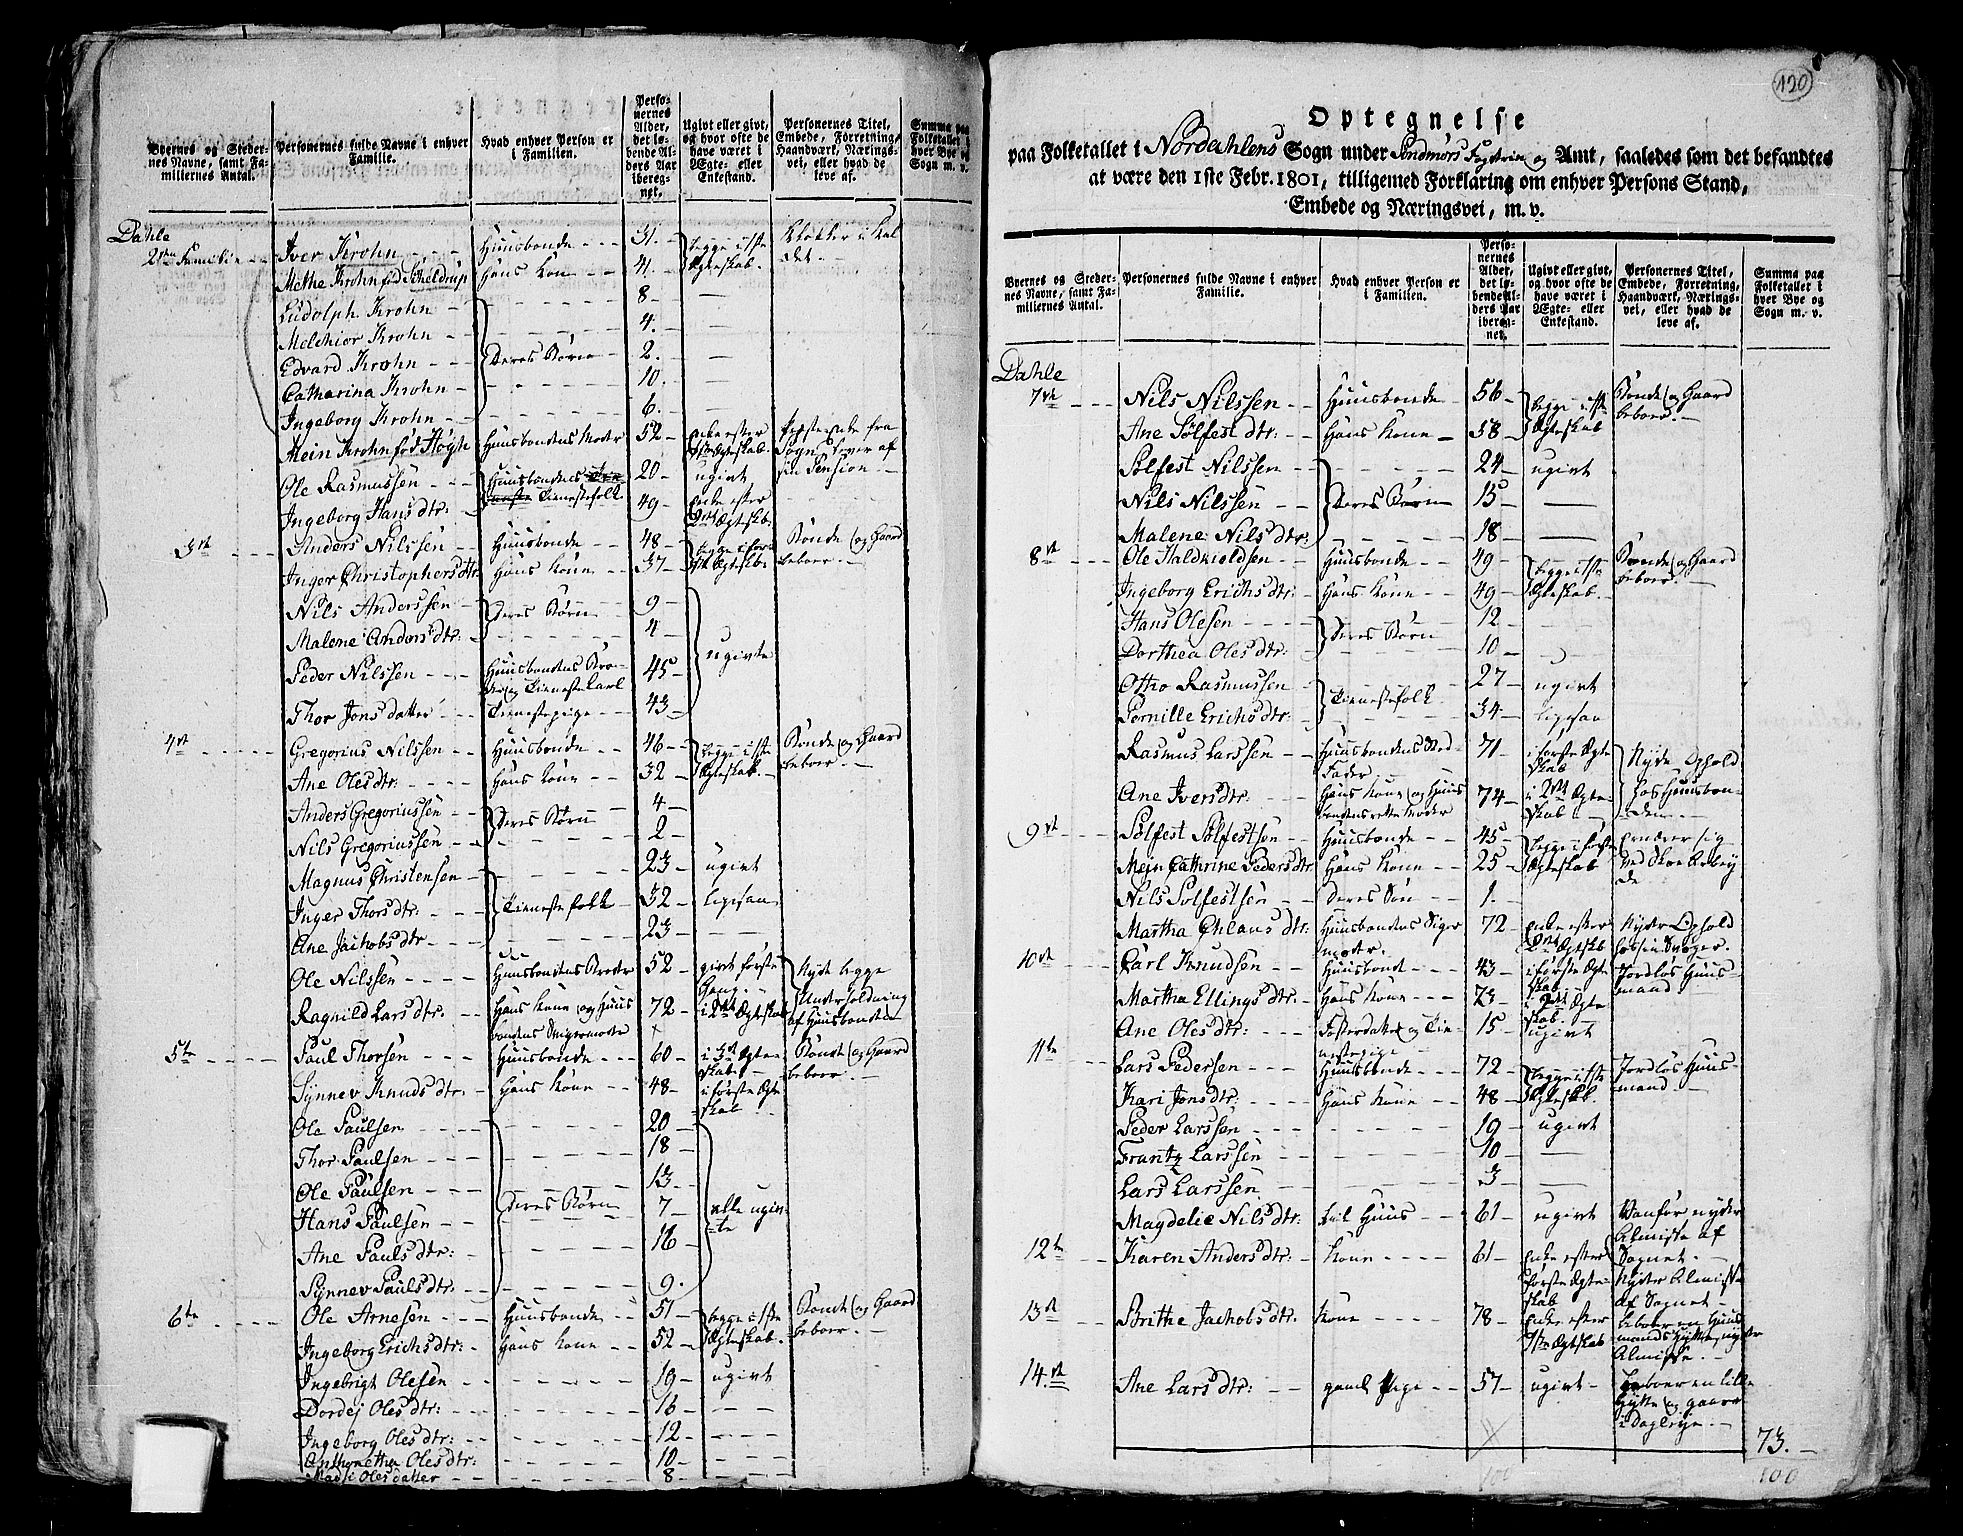 Byernes og Steder- nes Navne, samt Fa- miliernes Antal. | Personernes fulde Navne i enhver Familie. | Hvad enhver Person er i Familien. | Perso- nernes Alder, det lø- bende Al- ders Aar iberegnet. | Ugivt eller givt, og hvor ofte de have været i Ægte- eller Enkestand. | Personernes Titel, Embede, Forretning, Haandværk, Nærings- vei, eller hvad de leve af. | Summa paa Folketallet i hver Bye og Sogn m. v.
Dahle
2den Familie | Iver Krohn | Huusbonde | 31. | begge i 1ste Ægteskab. | Klokker i Kal det.
Methe Krohn fød Schieldrup | Hans Kone | 41.
Ludolph Krohn | Deres Børn | 8
Melchior Krohn | 4.
Edvard Krohn | 2.
Catharina Krohn | 10.
Ingeborg Krohn | 6.
Mein Krohn fød Høgh | Huusbondens Moder | 52 | enke efter 1ste Ægteskab. | Sogn lever af sin Pension
Ole Rasmussen | Huusbondens Tienestefolk | 20 | ugivt
Ingeborg Hans dtr: | 49 | Enke efter 2det Ægteskab.
3die | Anders Nilssen | Huusbonde | 48 | begge i første Ægteskab | Bonde og Gaard beboer.
Inger Christophers dtr | Hans Kone | 37
Nils Anderssen | Deres Børn | 9 | ugivte
Malene Anders dtr: | 4
Peder Nilssen | Huusbondens Bro- der og Tieneste Karl | 45
Thor Jons datter | Tienestepige | 43
4de | Gregorius Nilssen | Huusbonde | 46 | begge i 1ste Ægteskab. | Bonde og Gaard beboer.
Ane Oles dtr: | Hans Kone | 32
Anders Gregoriussen | Deres Børn | 4
Nils Gregoriussen | 2
Magnus Christensen | Tienestefolk | 23 | ugivt
Inger Thors dtr: | 32 | ligesaa
Ane Jachobs dtr | 23
Ole Nilssen | Huusbondens Broder | 52 | givt første Gang. | Nyde begge Underholdning af Huusbonden
Ragnild Lars dtr: | Hans Kone og Huus bondens Svigermoder | 72 | i 2det Ægteskab
5te | Paul Thorsen | Huusbonde | 60 | i 3die Ægte- skab | Bonde og Gaard beboer.
Synnev Knuds dtr: | Hans Kone | 48 | i første Ægte skab
Ole Paulsen | Deres Børn | 20 | alle ugiv- te
Thor Paulsen | 18
Ole Paulsen | 13
Hans Paulsen | 7
Ane Pauls dtr: | 16
Synnev Pauls dtr: | 9.
6te | Ole Arnesen | Huusbonde | 51 | begge i 1ste Ægteskab. | Bonde og Gaard beboer.
Ingeborg Erichs dtr: | Hans Kone | 52
Ingebrigt Olesen | 19 | ugivt
Dordej Oles dtr: | 16
Ingeborg Oles dtr: | 12
Anthonetha Oles dtr: | 10
Oles datter | 8
120
Optegnelse
paa Folketallet i Nordahlens Sogn under Søndmørs Fogderie og Amt, saaledes som det befandtes
at være den 1ste Febr. 1801, tilligemed Forklaring om enhver Persons Stand,
Embede og Næringsvei, m. v.
Byernes og Steder- nes Navne, samt Fa- miliernes Antal. | Personernes fulde Navne i enhver Familie. | Hvad enhver Person er i Familien. | Perso- nernes Alder, det lø- bende Al- ders Aar ibereg- net. | Ugivt eller givt, og hvor ofte de have været i Ægte- eller Enkestand. | Personernes Titel, Embede, Forretning, Haandværk, Nærings- vei, eller hvad de leve af. | Summa paa Folketallet i hver Bye og Sogn m. v.
Dahle
7de | Nils Nilssen | Huusbonde | 56 | begge i 1ste Ægteskab | Bonde og Gaard beboer.
Ane Sølfest dtr: | Hans Kone | 58
Sølfest Nilssen | Deres Børn | 24 | ugivt
Nils Nilssen | 15
Malene Nils dtr: | 18
8de | Ole | Huusbonde | 49 | begge i 1ste Ægteskab. | Bonde og Gaard beboer.
Ingeborg Erichs dtr: | Hans Kone | 49
Hans Olesen | Deres Børn | 12
Dorthea Oles dtr: | 10
Otho Rasmussen | Tienestefolk | 27 | ugivt
Pernille Erichs dtr: | 34 | ligesaa
Rasmus Larssen | Huusbondens Sted- Fader | 71 | i første Ægte skab | Nyde Ophold hos Huusbon- den.
Ane Ivers dtr: | Hans Kone og Huus bondens rette Moder | 74 | i 2det Ægte- skab
9de | Sølfest Sølfestsen | Huusbonde | 45 | begge i første Ægteskab | ernærer sig ved Skoe Arbey de
Mejn Cathrine Peders dtr | Hans Kone | 25
Nils Sølfestsen | Deres Søn | 1.
Martha Ehlaus dtr: | Huusbondens Sviger moder. | 72 | Enke efter 2det Ægtskb | Nyder Ophold hos sin Svoger.
10de | Carl Knudsen | Huusbonde | 43 | i første Ægte skab | Jordløs Huus- mand
Martha Ellings dtr: | Hans Kone | 73 | i 2det Ægte skab.
Ane Oles dtr: | Fosterdatter og Tie- nestepige | 15 | ugivt
11te | Lars Pedersen | Huusbonde | 72 | begge i 1ste Ægteskb. | Jordløs Huus- mand
Kari Jons dtr: | Hans Kone | 48
Peder Larssen | 19 | ugivt
Frantz Larssen | 10
Lars Larssen | 3
Magdelie Nils dtr: | til Huus | 61 | ugivt | Vanfør nyder Almisse af Sognet.
12te | Karen Anders dtr: | Kone | 61 | Enke efter første Ægte- skab | Nyder Almisse af Sognet
13de | Brithe Jachobs dtr. | Kone | 78 | Enke efter 1ste Ægteskab | beboer en Huus mands Hytte, nyder Almisse.
14de | Ane Lars dtr: | gaml Pige | 57 | ugivt | beboer en lille Hytte og gaaer i Dagleje.
73.
100
100